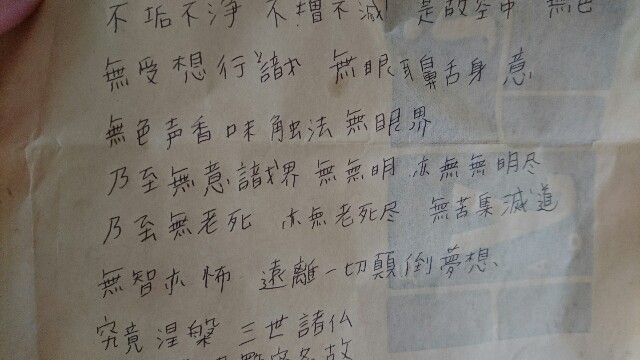 不垢不浄 不増不減 是故空中 無色
無受想行識 無眼耳鼻舌身意
無色声香味触法無眼界
乃至無意識界 無無明 亦無無明尽
乃至無老死 亦無老死尽 無苦集滅道
無智亦怖 遠離一切顛倒夢想、
究竟涅槃 三世諸仏
多故